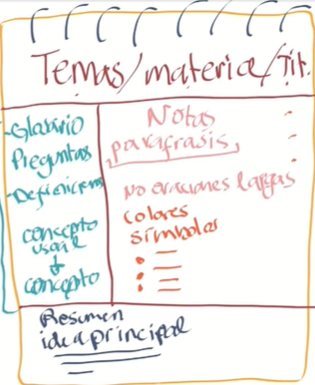 Temas/materia/Tit.
-Glosario
Preguntas
-Definiciones
concepto
usual
concepto
Notas
parafrasis
No oraciones largas
colores
simbolos
Resumen
idea principal